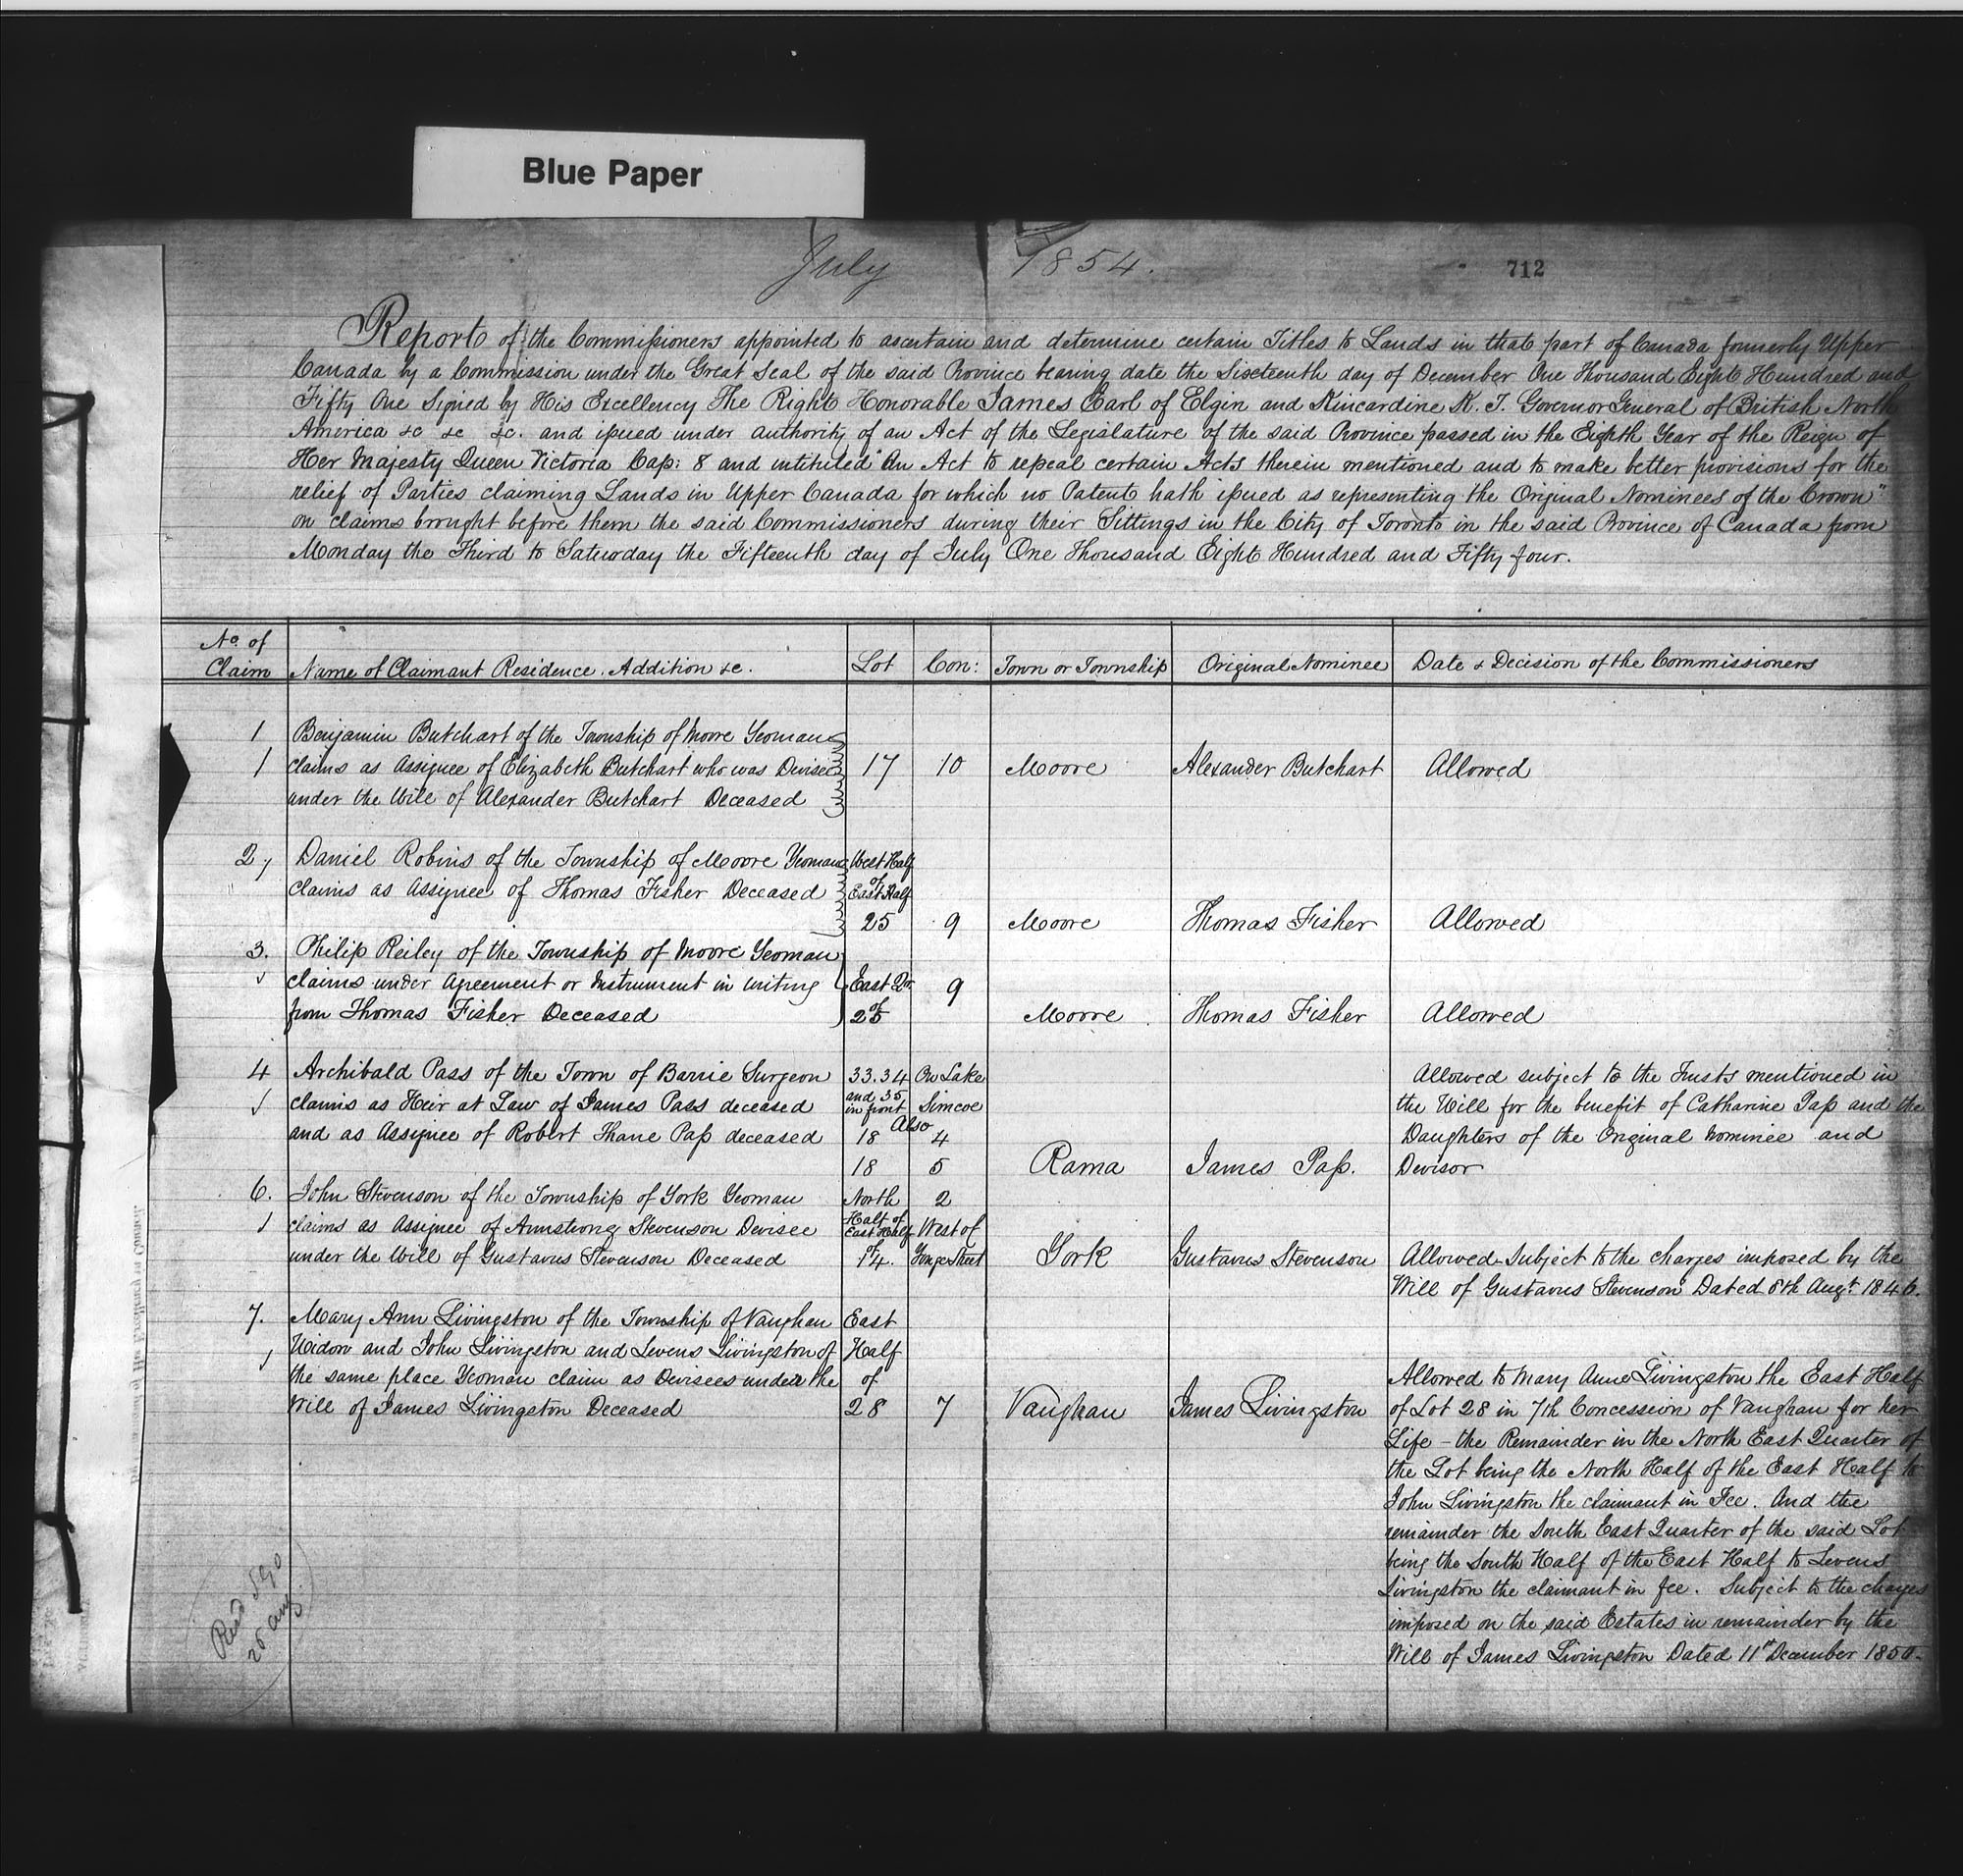 Blue Paper
July 1854.
712
Report of the Commissioners appointed to ascertain and determine certain Titles to Lands in that part of Canada formerly Upper
Canada by a Commission under the Great Seal of the said Province bearing date the Sixteenth day of December One Thousand Eight Hundred and
Fifty One Signed by His Excellency The Right Honorable James Earl of Elgin and Kincardine K. T. Governor General of British North
America &c &c &c. and issued under authority of an Act of the Legislature of the said Province passed in the Eighth Year of the Reign of
Her Majesty Queen Victoria Cap: 8 and intituled "An Act to repeal certain Acts therein mentioned and to make better provisions for the
relief of Parties claiming Lands in Upper Canada for which no Patent hath issued as representing the Original Nominees of the Crown"
on claims brought before them the said Commissioners during their Sittings in the City of Toronto in the said Province of Canada from
Monday the Third to Saturday the Fifteenth day of July One Thousand Eight Hundred and Fifty four.
No. of Claim
Name of Claimant Residence. Addition &c.
Lot
Con:
Town or Township
Original Nominee
Date & Decision of the Commissioners
1
Benjamin Butchart of the Township of Moore Yeoman
claims as Assignee of Elizabeth Butchart who was Devisee
under the Will of Alexander Butchart Deceased
17
10
Moore
Alexander Butchart
Allowed
2
Daniel Robins of the Township of Moore Yeoman
claims as Assignee of Thomas Fisher Deceased
West Half
of
East Half
25
9
Moore
Thomas Fisher
Allowed
3.
Philip Reiley of the Township of Moore Yeoman
claims under Agreement or Instrument in writing
from Thomas Fisher Deceased
East Qr
of
25
9
Moore
Thomas Fisher
Allowed
4
Archibald Pass of the Town of Barrie Surgeon
claims as Heir at Law of James Pass deceased
and as Assignee of Robert Thane Pass deceased
33.34
and 35
in front
On Lake
Simcoe
Also
18
4
18
5
Rama
James Pass.
Allowed subject to the Trusts mentioned in
the Will for the benefit of Catharine Pass and the
Daughters of the Original Nominee and
Devisor
6.
John Stevenson of the Township of York Yeoman
claims as Assignee of Armstrong Stevenson Devisee
under the Will of Gustavus Stevenson Deceased
North
Half of
East Half
of
14.
2
West of
Yonge Street
York
Gustavus Stevenson
Allowed Subject to the charges imposed by the
Will of Gustavus Stevenson Dated 8th Augt. 1846.
7.
Mary Ann Livingston of the Township of Vaughan
Widow and John Livingston and Levens Livingston of
the same place Yeoman claim as Devisees under the
Will of James Livingston Deceased
East
Half
of
28
7
Vaughan
James Livingston
Allowed to Mary Anne Livingston the East Half
of Lot 28 in 7th Concession of Vaughan for her
Life - the Remainder in the North East Quarter of
the Lot being the North Half of the East Half to
John Livingston the claimant in Fee. And the
remainder the South East Quarter of the said Lot
being the South Half of the East Half to Levens
Livingston the claimant in fee. Subject to the charges
imposed on the said Estates in remainder by the
Will of James Livingston Dated 11th December 1850.